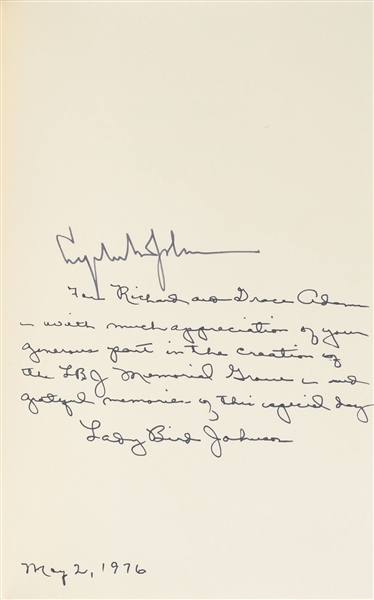 Lyndon B. Johnson
For Richard and Grace Adams
– with much appreciation of your
generous part in the creation of
the LBJ Memorial Grove – and
grateful memories of this special day
Lady Bird Johnson
May 2, 1976